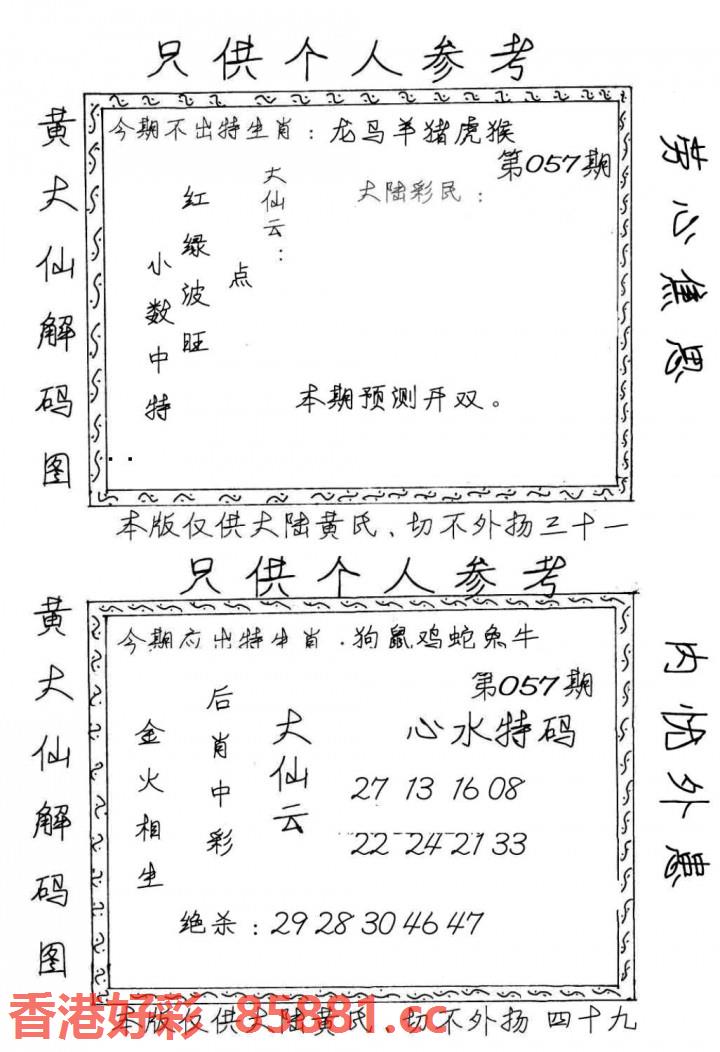 只供个人参考
黄大仙解码图
今期不出特生肖：龙马羊猪虎猴
第057期
大陆彩民：
大仙云：
点
红绿波旺
小数中特
本期预测开双。
劳心焦思
本版仅供大陆黄氏、切不外扬三十一
只供个人参考
黄大仙解码图
今期应出特生肖．狗鼠鸡蛇兔牛
第057期
心水特码
27 13 16 08
22 24 21 33
大仙云
后肖中彩
金火相生
绝杀：29 28 30 46 47
内忧外患
本版仅供大陆黄氏、切不外扬 四十九
香港好彩 85881.cc